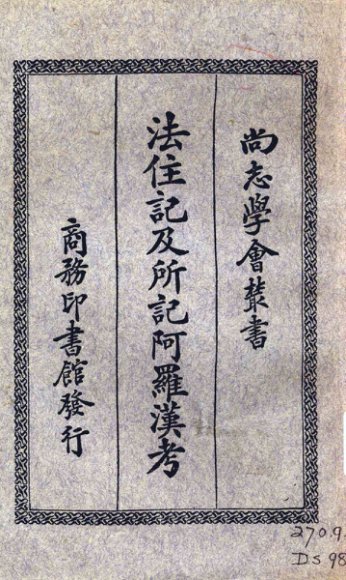 尚志學會叢書
法住記及所記阿羅漢考
商務印書館發行
270.9
DS 98